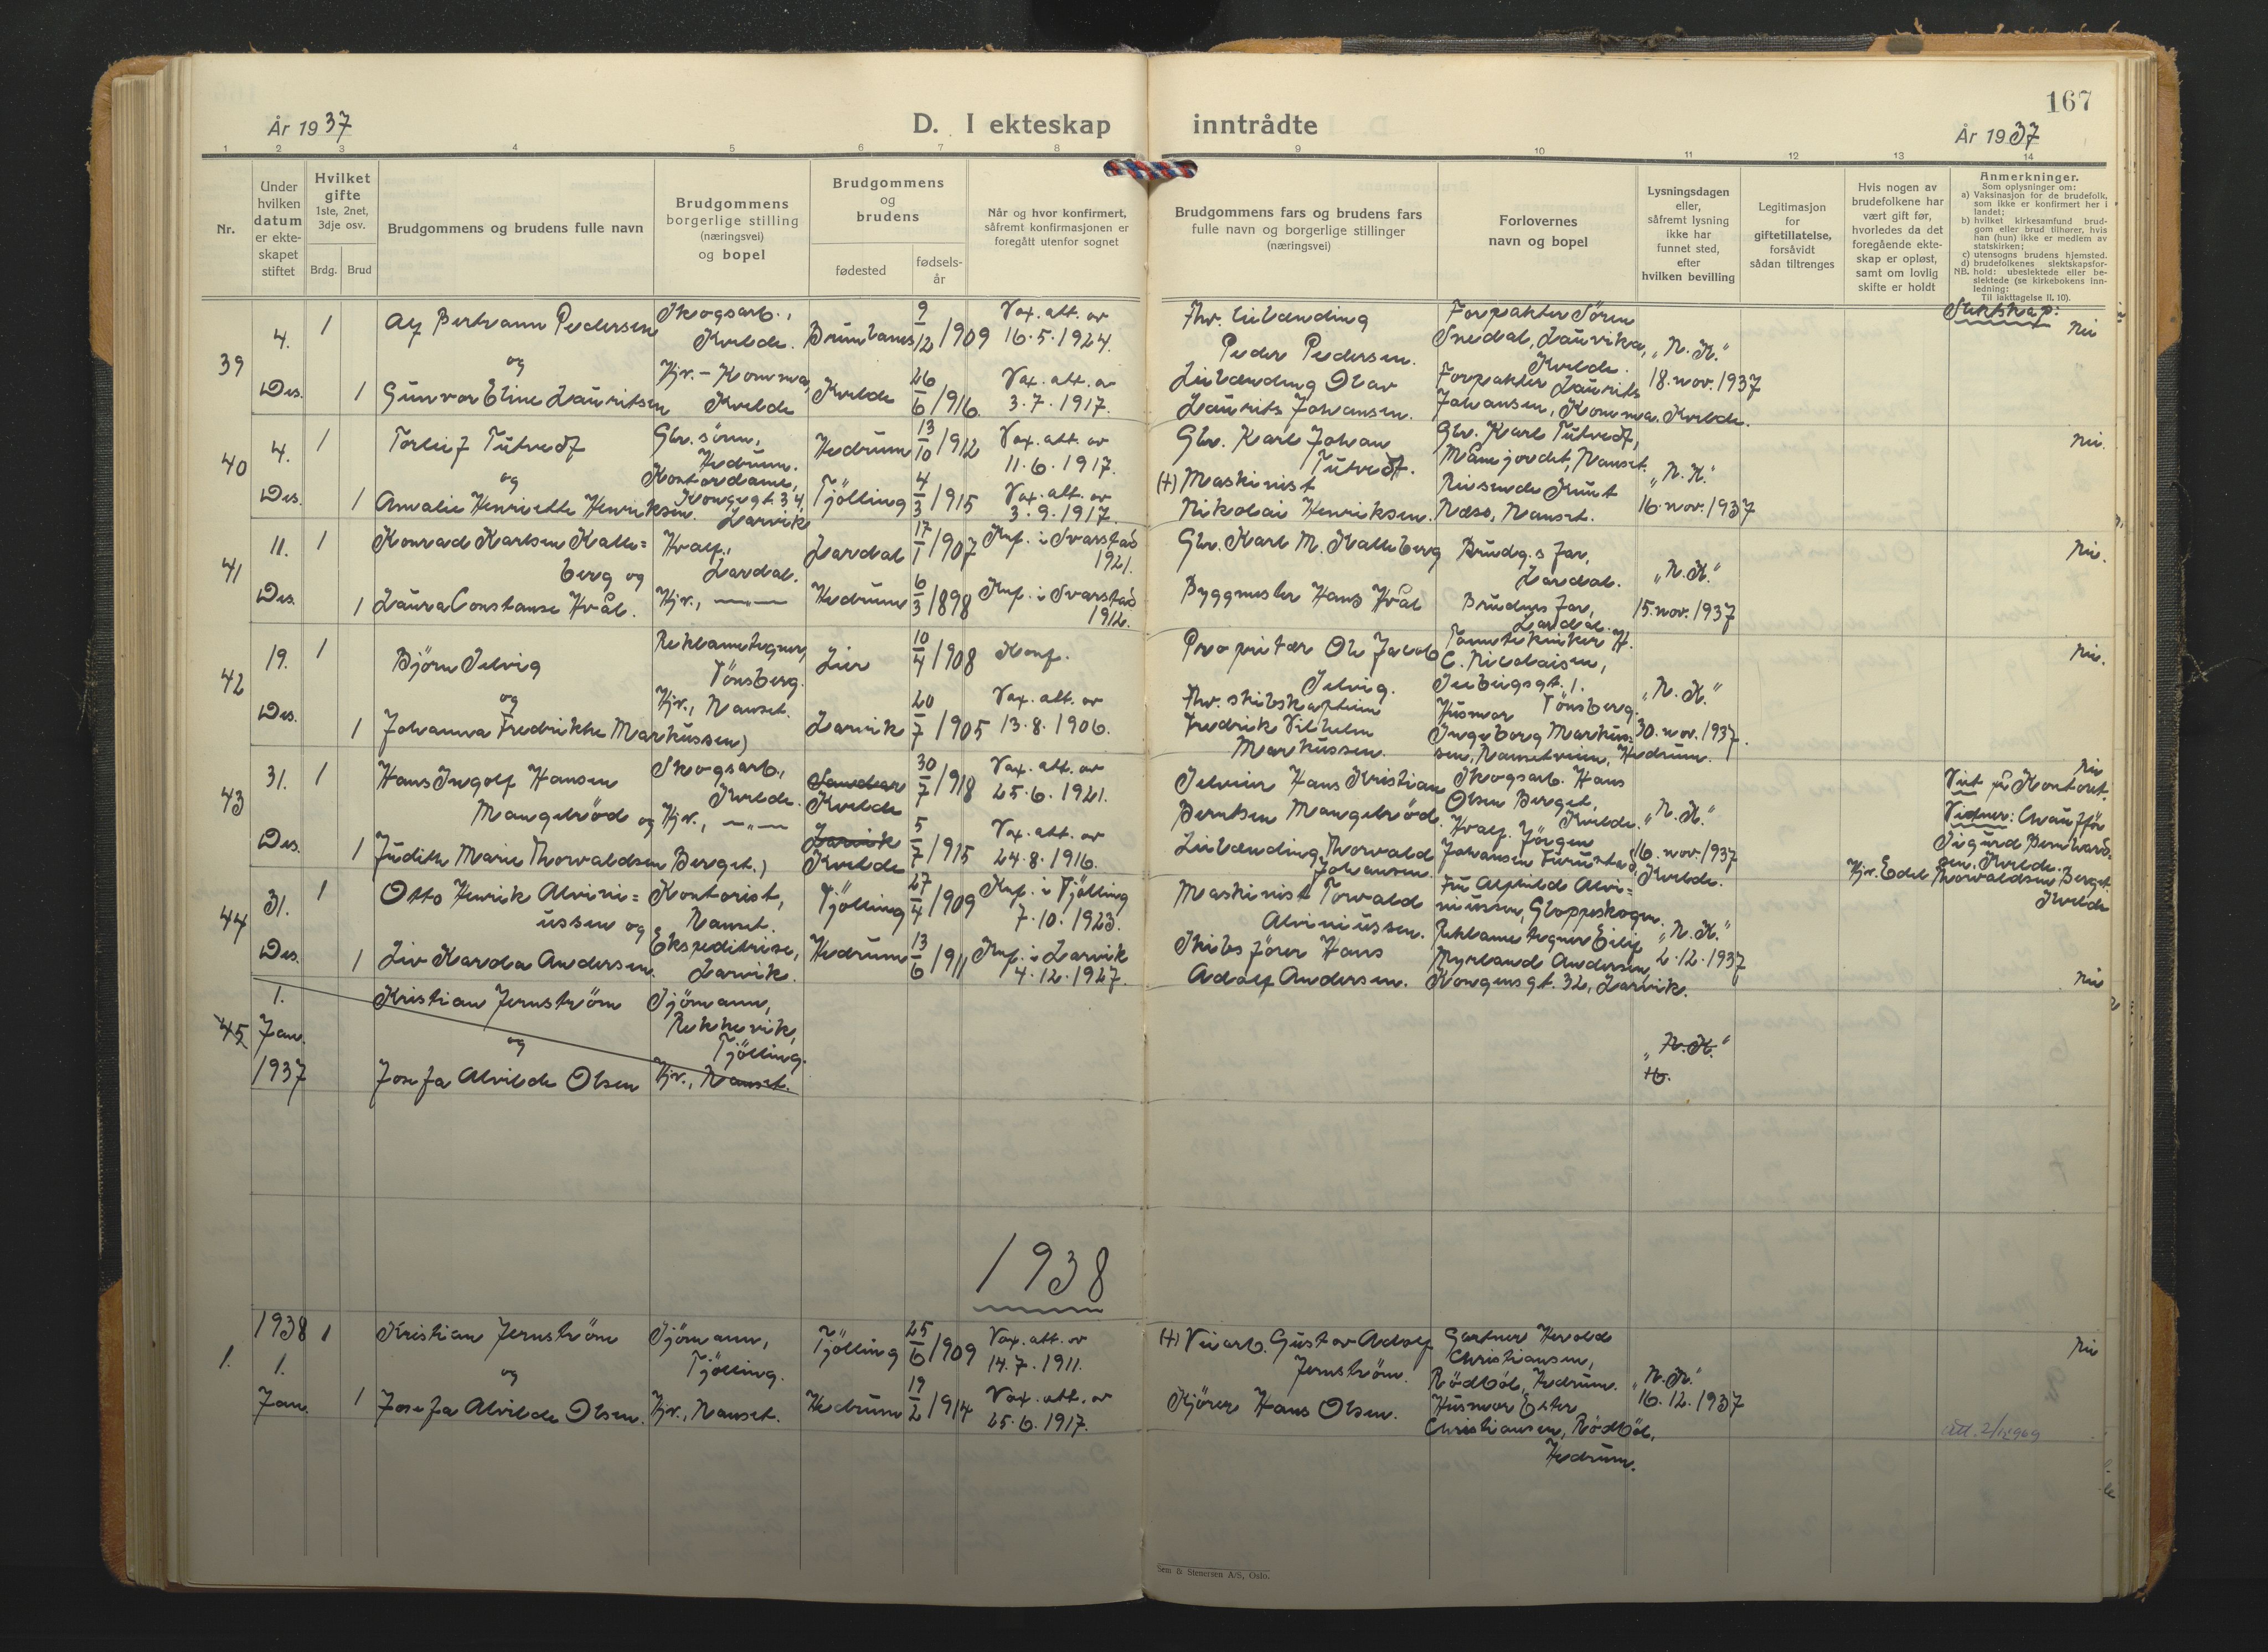 167
År 1937
D. I ekteskap
inntrådte
År 1937
1 2 3 4 5 6 7 8
9 10 11 12 13 14
Nr.
Under
hvilken
datum
er ekte-
skapet
stiftet
Hvilket
gifte
1ste, 2net,
3dje osv.
Brdg. Brud
Brudgommens og brudens fulle navn
Brudgommens
borgerlige stilling
(næringsvei)
og bopel
Brudgommens
og
brudens
fødested
fødsels-
år
Når og hvor konfirmert,
såfremt konfirmasjonen er
foregått utenfor sognet
Brudgommens fars og brudens fars
fulle navn og borgerlige stillinger
(næringsvei)
Forlovernes
navn og bopel
Lysningsdagen
eller,
såfremt lysning
ikke har
funnet sted,
efter
hvilken bevilling
Legitimasjon
for
giftetillatelse,
forsåvidt
sådan tiltrenges
Hvis nogen av
brudefolkene har
vært gift før,
hvorledes da det
foregående ekte-
skap er opløst,
samt om lovlig
skifte er holdt
Anmerkninger.
Som oplysninger om:
a) Vaksinasjon for de brudefolk,
som ikke er konfirmert her i
landet;
b) hvilket kirkesamfund brud-
gom eller brud tilhører, hvis
han (hun) ikke er medlem av
statskirken;
c) utensogns brudens hjemsted.
d) brudefolkenes slektskapsfor-
NB. hold: ubeslektede eller be-
slektede (se kirkebokens inn-
ledning:
Til iakttagelse II, 10).
Slektskap:
39
4.
Des.
1
1
Alf Bertrann Pedersen
og
Gunvor Eline Lauritsen
Skogsarb.,
Kvelde.
Hjv. - Komma,
Kvelde
Brunlanes
Kvelde
9/12 1909
26/6 1916.
Vax. att. av
16.5.1924.
Vax. att. av
3.7.1917.
Fhv. leilending
Peder Pedersen.
Leilending Olav
Laurits Johansen.
Forpakter Sören
Snedal, Laurvika,
Kvelde.
Forpakter Laurits
Johansen, Komma. Kvelde.
"N. K."
18. nov. 1937
nei
40
4.
Des.
1
1
Torleif Tutvedt
og
Amalie Henriette Henriksen.
Gbr. sönn,
Hedrum.
Kontordame,
Kongegt. 34,
Larvik
Hedrum
Tjölling
13/10 1912
4/3 1915
Vax. att. av
11.6.1917.
Vax. att. av
3.9.1917.
Gbr. Karl Johan
Tutvedt.
(+) Maskinist
Nikolai Henriksen.
Gbr. Karl Tutvedt,
Månejordet, Nanset.
Reisende Knut
Næss, Nanset.
"N. K."
16. nov. 1937
nei.
41
11.
Des.
1
1
Konrad Karlsen Kalle=
berg og
Laura Constanse Hvål.
Hvalf.,
Lardal.
Hjv., —"—
Lardal
Hedrum
17/1 1907
6/3 1898
Knf. i Svarstad
1921.
Knf. i Svarstad
1912.
Gbr. Karl M. Kalleberg
Byggmester Hans Hvål
Brudg.s far,
Lardal.
Brudens far,
Lardal.
"N. K."
15. nov. 1937
nei.
42
19.
Des.
1
1
Björn Selvig
og
Johanna Fredrikke Markussen)
Reklametegner,
Tönsberg.
Hjv., Nanset.
Lier
Larvik
10/4 1908
20/7 1905
Konf.
Vax. att. av
13.8.1906.
Proprietær Ole Jacob
Selvig.
Fhv. skibskaptein
Fredrik Vilhelm
Markussen.
Tanntekniker H.
C. Nicolaisen,
Seebergsgt. 1.
Tönsberg.
Husmor
Ingeborg Markus=
sen, Nansetveien, Hedrum.
"N. K."
30. nov. 1937.
nei.
43
31.
Des.
1
1
Hans Ingolf Hansen
Mangelröd og
Judith Marie Thorvaldsen Berget.)
Skogsarb.,
Kvelde.
Hjv., —"—
Sandar
Kvelde
Larvik
Kvelde
30/7 1918
5/7 1915
Vax. att. av
25.6.1921.
Vax. att. av
24.8.1916.
Selveier Hans Kristian
Berntsen Mangelröd.
Leilending Thorvald
Johansen.
Skogsarb. Hans
Olsen Berget,
Kvelde.
Hvalf. Jörgen
Johansen Furustad,
Kvelde.
"N. K."
16. nov. 1937
nei
Viet på Kontoret.
Vidner: Chauffør
Sigurd Bernhard=
sen. Kvelde.
Hjv. Edel Thorvaldsen Berget.
Kvelde
44
31.
Des.
1
1
Otto Henrik Alvini=
ussen og
Liv Karda Andersen.
Kontorist,
Nanset.
Ekspeditrise,
Larvik.
Tjölling
Hedrum
27/4 1909
13/6 1911
Knf. i Tjölling
7.10.1923.
Knf. i Larvik
4.12.1927.
Maskinist Torvald
Alviniussen.
Skibsförer Hans
Adolf Andersen.
Fru Alfhilde Alvi=
niussen, Gloppeskogen.
Reklametegner Eilif
Myrland Andersen,
Kongensgt. 32, Larvik.
"N. K."
2.12.1937
nei
45
1.
Jan.
1937
Kristian Jernström
og
Josefa Alvilde Olsen
Sjömann,
Rekkevik,
Tjölling.
Hjv., Nanset.
"N. K."
16.
1938
1.
1938
1.
Jan.
1
1
Kristian Jernström
og
Josefa Alvilde Olsen.
Sjömann,
Tjölling.
Hjv., Nanset.
Tjölling
Hedrum
25/6 1909
19/2 1914
Vax. att. av
14.7.1911.
Vax. att. av
25.6.1917.
(+) Veiarb. Gustav Adolf
Jernström.
Kjörer Hans Olsen.
Gartner Herold
Christiansen,
Rödböl, Hedrum.
Husmor Ester
Christiansen, Rödböl,
Hedrum.
"N. K."
16.12.1937
nei
att. 2/12 969
Sem & Stenersen A/S, Oslo.